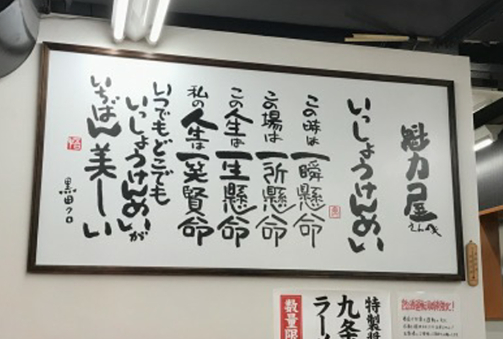 魁力屋
いっしょうけんめい
この時は一瞬懸命
この場は一所懸命
この人生は一生懸命
私の人生は一笑賢命
いつでもどこでも
いっしょうけんめいが
いちばん美しい
黒田クロ
特製醤
九条
ラーメ
数量限